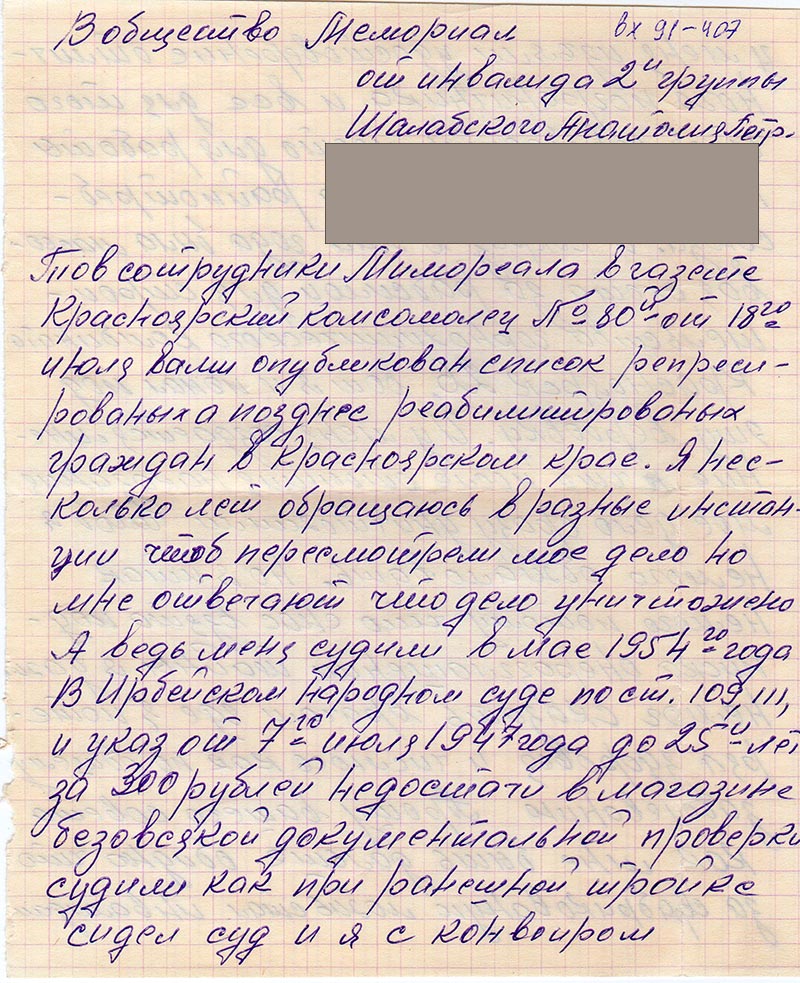 В общество Мемориал
вх 91-407
от инвалида 2й группы
Шалабского Анатолия Петр.
Тов сотрудники Мимореала в газете
Красноярский комсомолец № 80й от 18го
июля вами опубликован список репреси-
рованых а позднее реабилитированых
граждан в Красноярском крае. Я нес-
колько лет обращаюсь в разные инстан-
ции чтоб пересмотрели мое дело но
мне отвечают что дело уничтожено
А ведь меня судили в мае 1954го года
В Ирбейском народном суде по ст. 109, 111,
и указ от 7го июля 1947 года до 25й лет
за 300 рублей недостачи в магазине
безовсякой документальной проверки
судили как при ранешной тройке
сидел суд и я с конвоиром